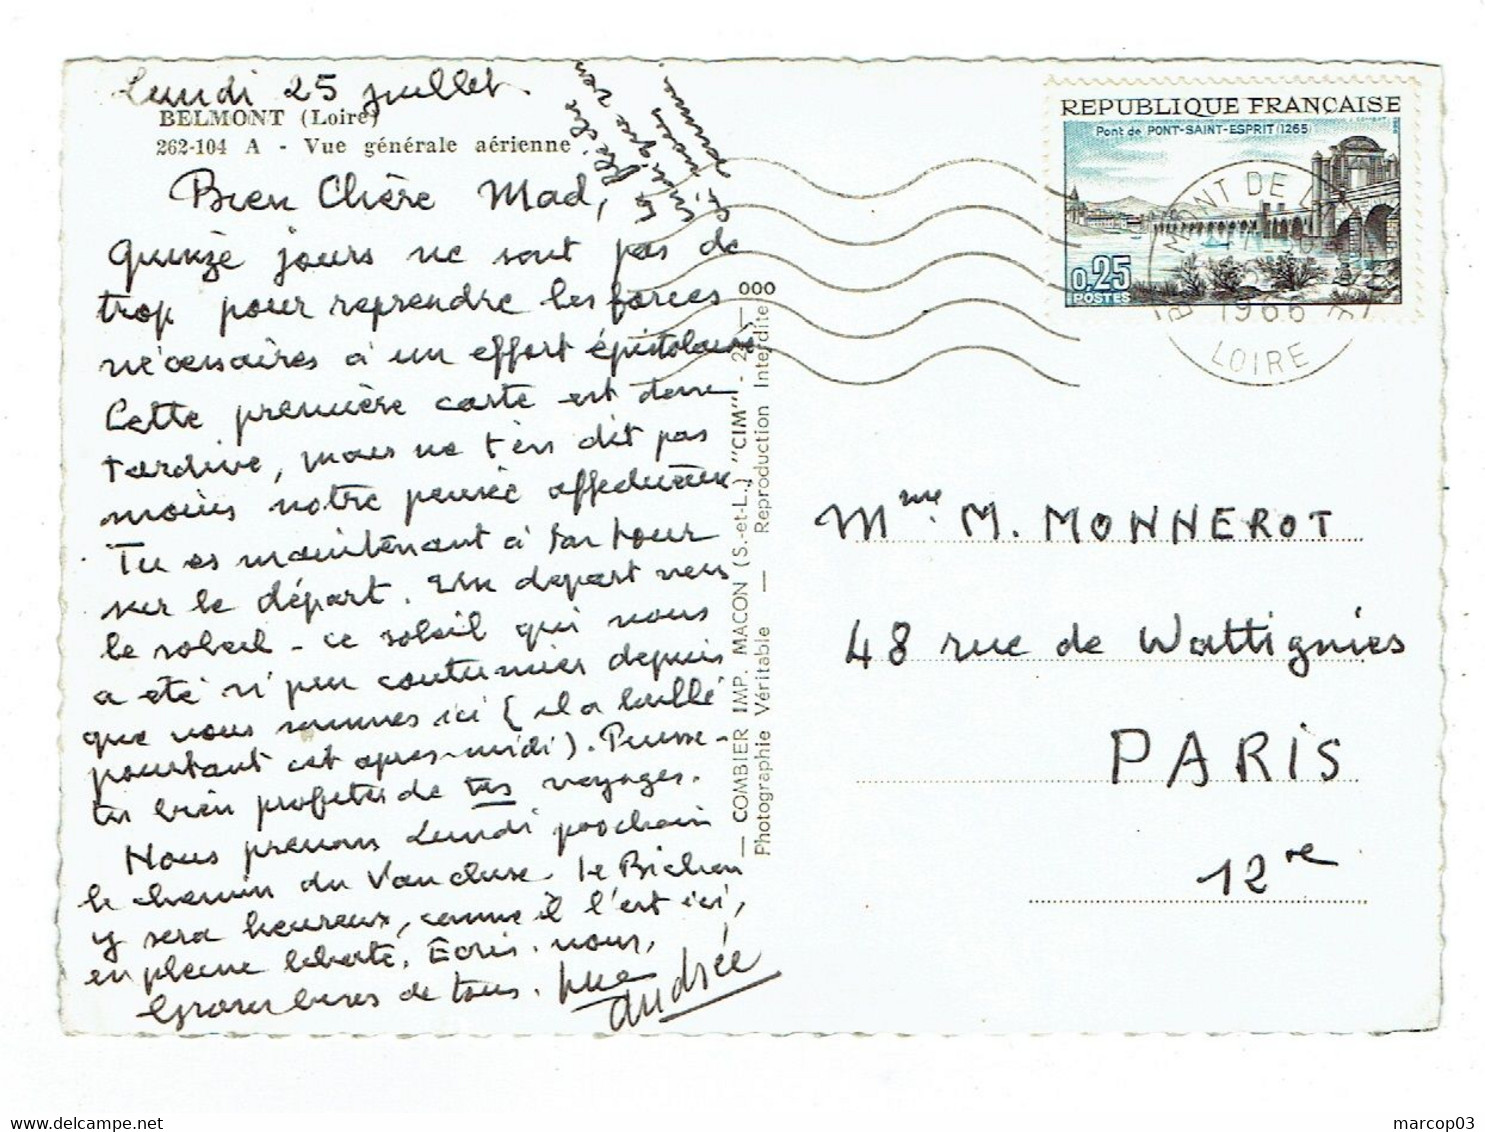 Lundi 25 juillet
BELMONT (Loire)
262-104 A - Vue générale aérienne
Bien Chère Mad,
Quinze jours ne sont pas de
trop pour reprendre les forces
nécessaires à un effort épistolaire
Cette première carte est donc
tardive, mais ne t'en dit pas
moins notre pensée affectueuse
Tu es maintenant à ton tour
sur le départ. Un départ vers
le soleil - ce soleil qui nous
a été si peu coutumier depuis
que nous sommes ici (il a brillé
pourtant cet après-midi). Puisses-
tu bien profiter de tes voyages.
Nous prenons Lundi prochain
le chemin du Vaucluse. Le Bichon
y sera heureux, comme il l'est ici,
en pleine liberté. Ecris-nous,
Grosses bises de tous.
Andrée
— COMBIER IMP. MACON (S.-et-L.) "CIM" -
Photographie Véritable — Reproduction Interdite
000
REPUBLIQUE FRANÇAISE
Pont de PONT-SAINT-ESPRIT (1265)
0,25
POSTES
BELMONT DE LA LOIRE
1966
LOIRE
Mme. M. MONNEROT
48 rue de Wattignies
PARIS
12e
www.delcampe.net
marcop03